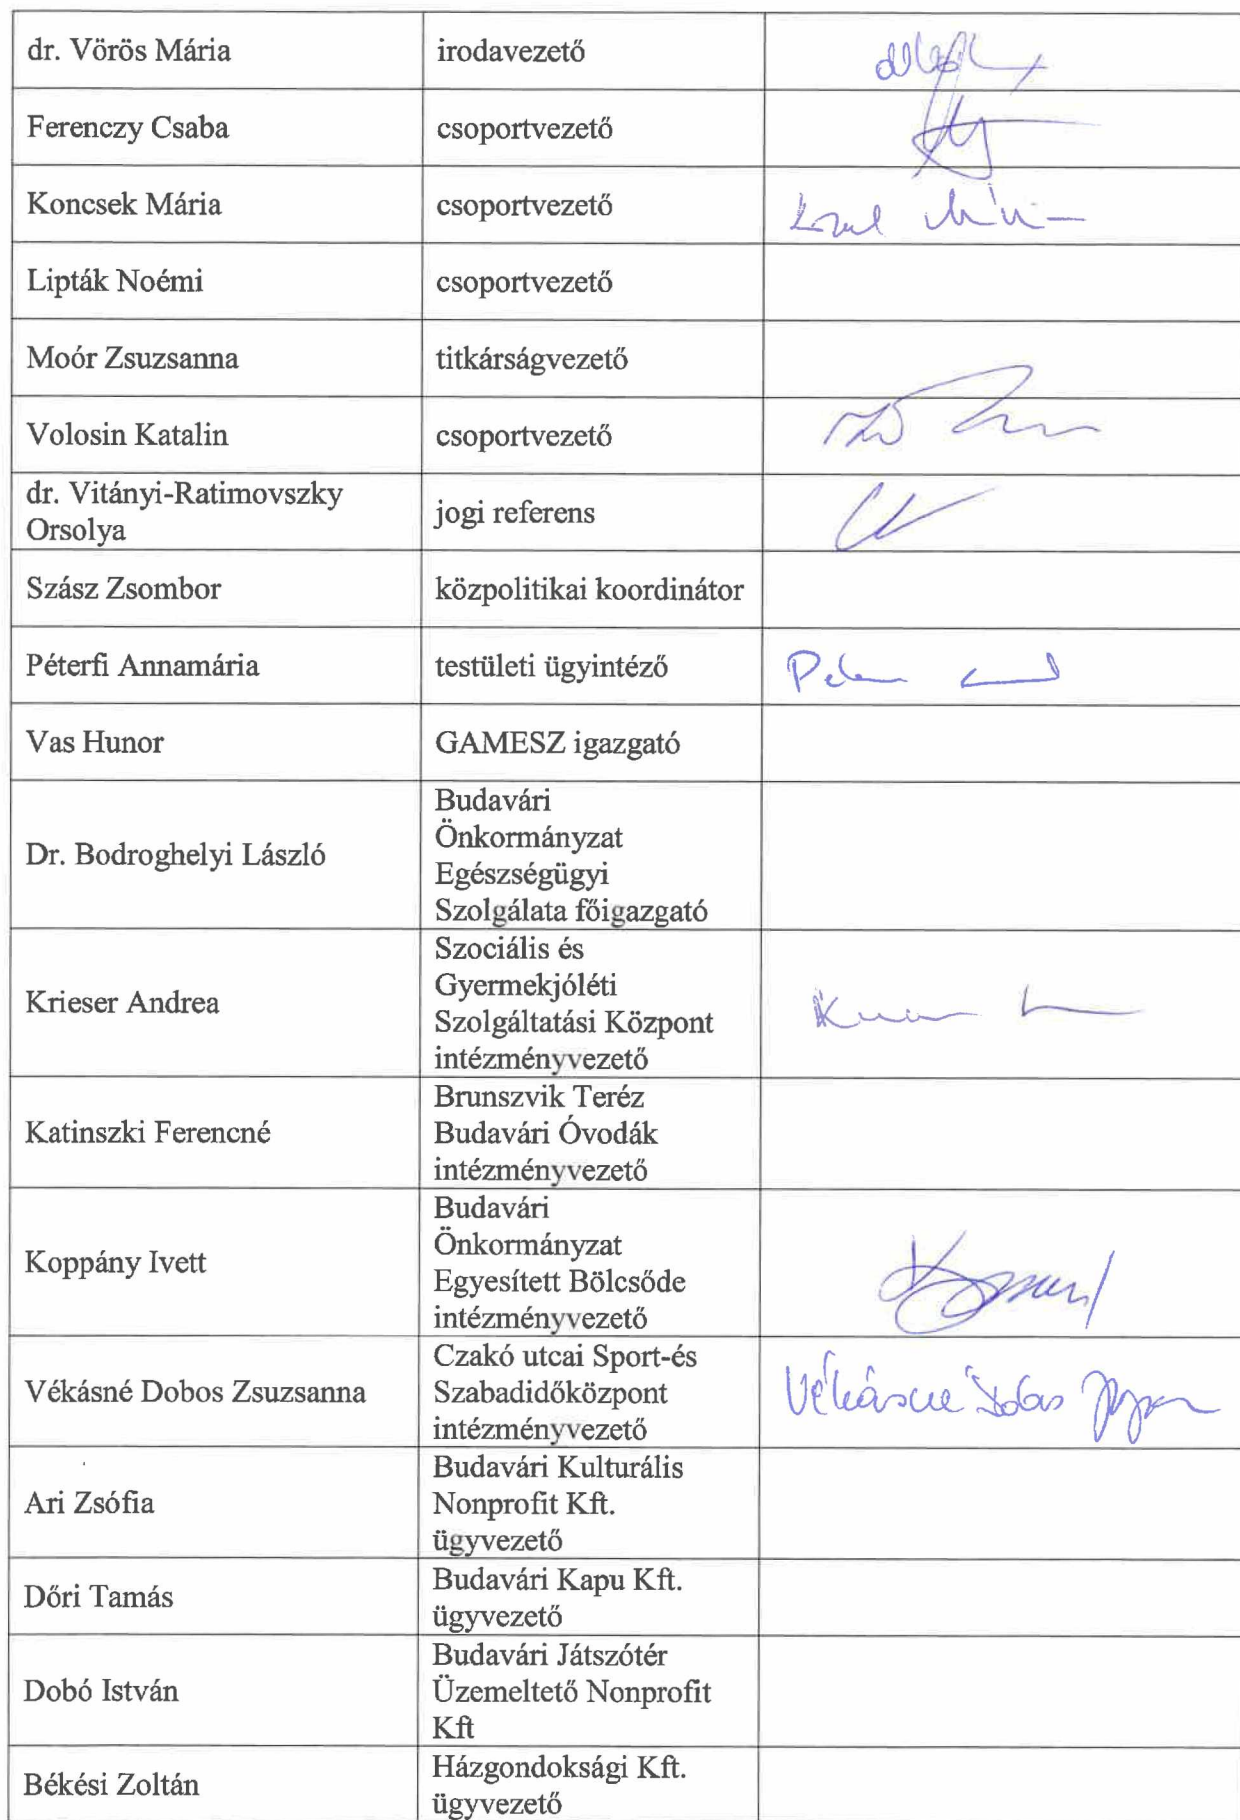 dr. Vörös Mária
irodavezető
Ferenczy Csaba
csoportvezető
Koncsek Mária
csoportvezető
Lipták Noémi
csoportvezető
Moór Zsuzsanna
titkárságvezető
Volosin Katalin
csoportvezető
dr. Vitányi-Ratimovszky
Orsolya
jogi referens
Szász Zsombor
közpolitikai koordinátor
Péterfi Annamária
testületi ügyintéző
Vas Hunor
GAMESZ igazgató
Dr. Bodroghelyi László
Budavári
Önkormányzat
Egészségügyi
Szolgálata főigazgató
Krieser Andrea
Szociális és
Gyermekjóléti
Szolgáltatási Központ
intézményvezető
Katinszki Ferencné
Brunszvik Teréz
Budavári Óvodák
intézményvezető
Koppány Ivett
Budavári
Önkormányzat
Egyesített Bölcsőde
intézményvezető
Vékásné Dobos Zsuzsanna
Czakó utcai Sport-és
Szabadidőközpont
intézményvezető
Vékásné Dobos
Ari Zsófia
Budavári Kulturális
Nonprofit Kft.
ügyvezető
Dőri Tamás
Budavári Kapu Kft.
ügyvezető
Dobó István
Budavári Játszótér
Üzemeltető Nonprofit
Kft
Békési Zoltán
Házgondoksági Kft.
ügyvezető